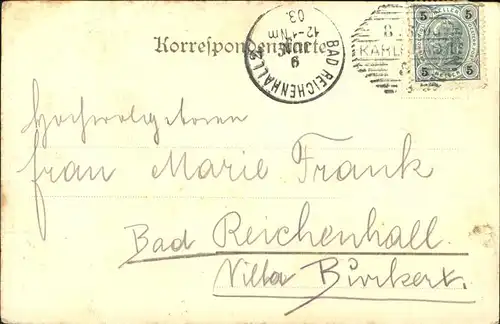 Korrespondenzkarte
BAD REICHENHALL
9
12-1 Nm
03.
8
KARL
5 5
5 5
Hochwolgeboren
Frau Marie Frank
Bad Reichenhall.
Villa Burkert.